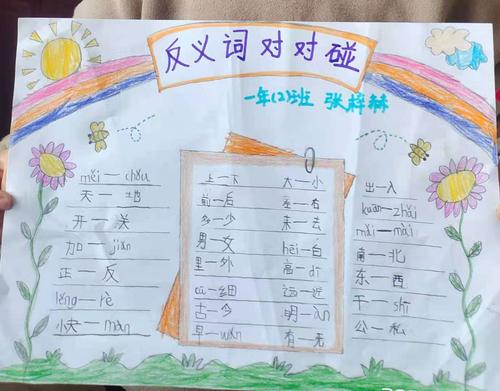 反义词对对碰
一年(2)班 张梓赫
měi — chǒu
天 — 地
开 — 关
加 — jiǎn
正 — 反
lěng — rè
快 — màn
上 — 下
前 — 后
多 — 少
男 — 女
里 — 外
cū — 细
古 — 今
早 — wǎn
大 — 小
左 — 右
来 — 去
hēi — 白
高 — dī
远 — 近
明 — àn
有 — 无
出 — 入
kuān — zhǎi
mǎi — mài
南 — 北
东 — 西
干 — shī
公 — 私